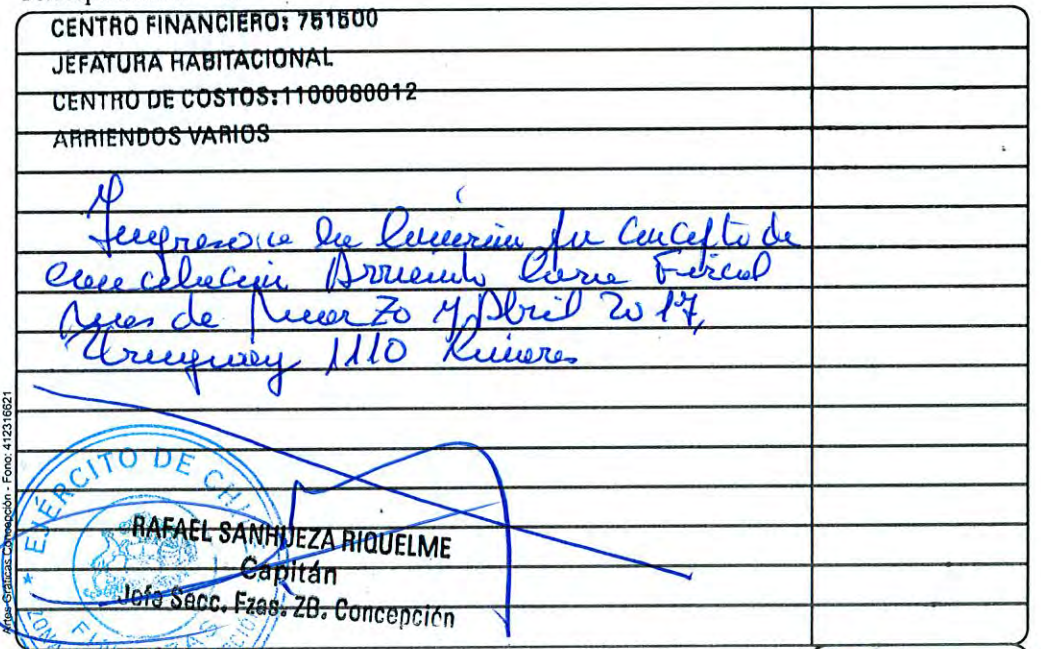 CENTRO FINANCIERO: 751500
JEFATURA HABITACIONAL
CENTRO DE COSTOS: 1100080012
ARRIENDOS VARIOS
por Concepto de
cancelación Arriendo Casa Fiscal
Mes de Marzo y Abril 2017,
Uruguay 1110
EJÉRCITO DE CHI
RAFAEL SANHUEZA RIQUELME
Capitán
Jefe Secc. Fzas. ZB. Concepción
Artes Gráficas Concepción - Fono: 412316621